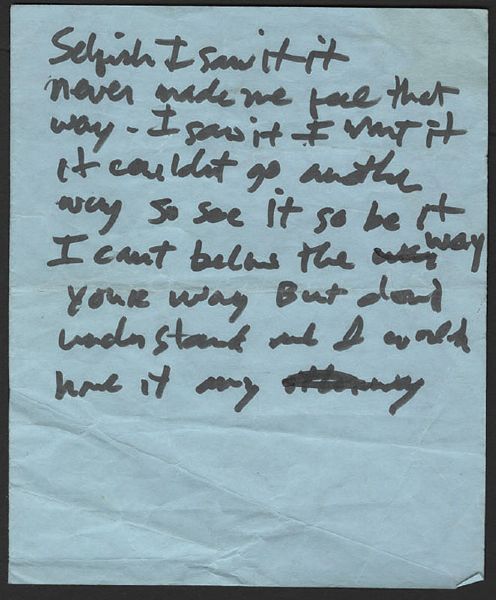 Selfish I saw it it
never made me feel that
way - I saw it I want it
it couldnt go another
way so see it so be it
I cant believe the way
your way But dont
understand me I would
have it my